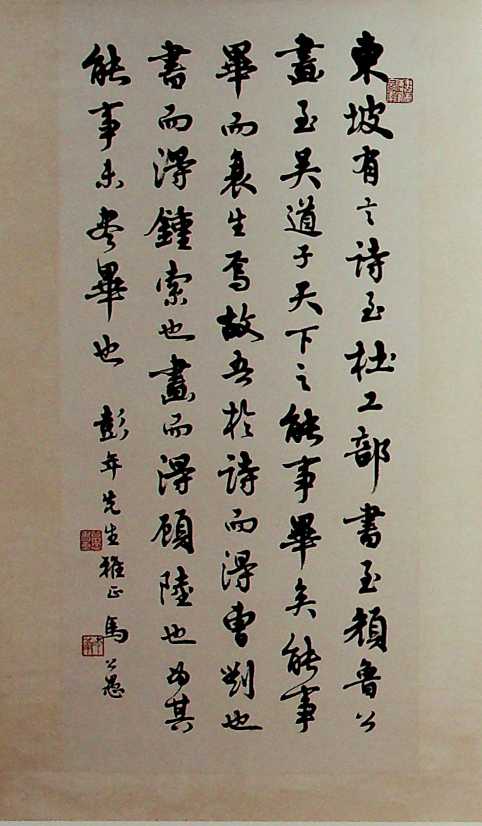 東坡有言詩至杜工部書至顏魯公
畫至吳道子天下之能事畢矣能事
畢而衰生焉故吾於詩而得曹劉也
書而得鍾索也畫而得顧陸也為其
能事未盡畢也 彭年先生雅正 馬公愚